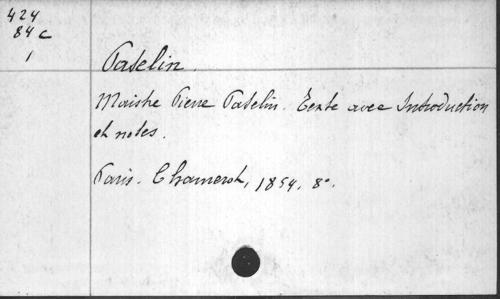 424
84 c
1
Patelin.
Maistre Pierre Patelin. Texte avec Introduction
et notes.
Paris. Chamerot, 1854, 8°.